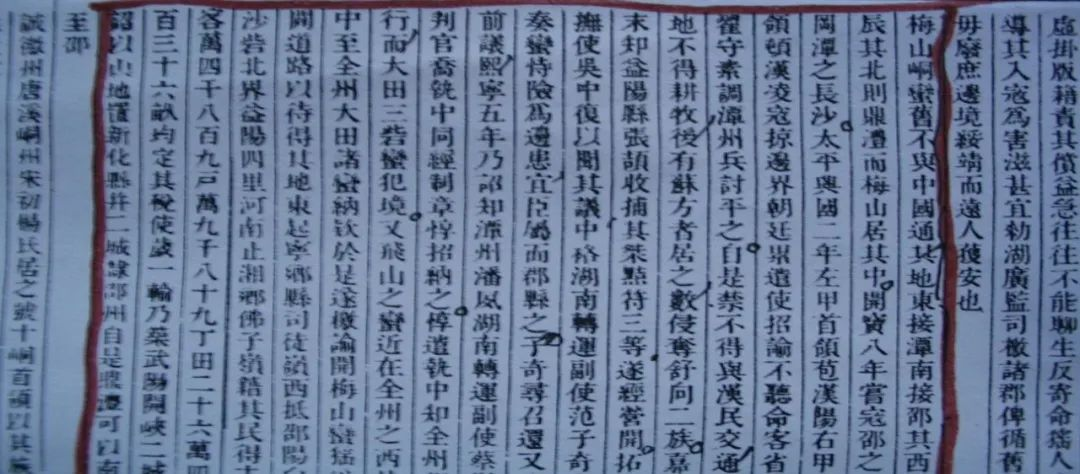 虛掛版籍責其償益急往往不能聊生反寄命猺人
導其入寇為害滋甚宜勑湖廣監司檄諸郡俾循舊
毋廢庶邊境綏靖而遠人獲安也
梅山峒蠻舊不與中國通其地東接潭南接邵其西
辰其北則鼎澧而梅山居其中開寶八年嘗寇邵之
潭之長沙太平興國二年左甲首領苞漢陽右甲
領頓漢凌寇掠邊界朝廷累遣使招諭不聽命客省
翟守素調潭州兵討平之自是禁不得與漢民交通
地不得耕牧後有蘇方者居之數侵奪舒向二族嘉
末知益陽縣張頡收捕其桀黠符三等遂經營開拓
撫使吳中復以聞其議中格湖南轉運副使范子奇
奏蠻恃險為邊患宜臣屬而郡縣之子奇尋召還又
前議熙寧五年乃詔知潭州潘夙湖南轉運副使蔡
判官喬執中同經制章惇招納之惇遣執中知全州
行而大田三砦蠻犯境又飛山之蠻近在全州之西
中至全州大田諸蠻納欵於是遂檄諭開梅山蠻猺
開道路以待得其地東起寧鄉縣司徒嶺西抵邵陽
沙砦北界益陽四里河南止湘鄉佛子嶺籍其民得主
客萬四千八百九戶萬九千八十九丁田二十六萬四
百三十六畝均定其稅使歲一輸乃築武陽關峽二城
詔以山地置新化縣并二城隸邵州自是鼎澧可以南
至邵
誠徽州唐溪峒州宋初楊氏居之號十峒首領以其族